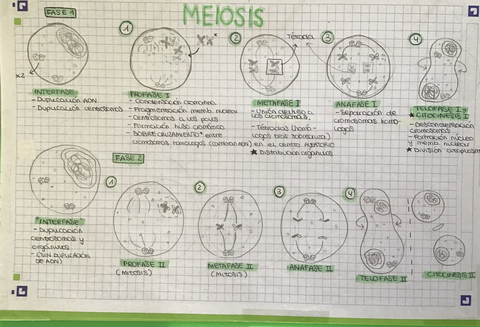 MEIOSIS
FASE 1
1
2
Tétrada
3
4
x2
INTERFASE
- Duplicación ADN
- Duplicación centrosomas
PROFASE I
- Condensación cromatina
- Fragmentación memb. nuclear
- Centrosomas a los polos
- Formación huso cromático
- "SOBRECRUZAMIENTO" entre
cromosomas homólogos
METAFASE I
- Unión células a
los cromosomas.
- Tétradas
en el centro
★ Distribución orgánulos
ANAFASE I
- Separación de
cromosomas homó-
logos
TELOFASE I y
★ CITOCINESIS I
- Descondensación
cromosomas
- Formación núcleo
y memb. nuclear
★ División citoplasma
FASE 2
1
2
3
4
"INTERFASE"
- Duplicación
centrosomas y
orgánulos
- (SIN DUPLICACIÓN
DE ADN)
PROFASE II
(MITOSIS)
METAFASE II
(MITOSIS)
ANAFASE II
TELOFASE II
CITOCINESIS II